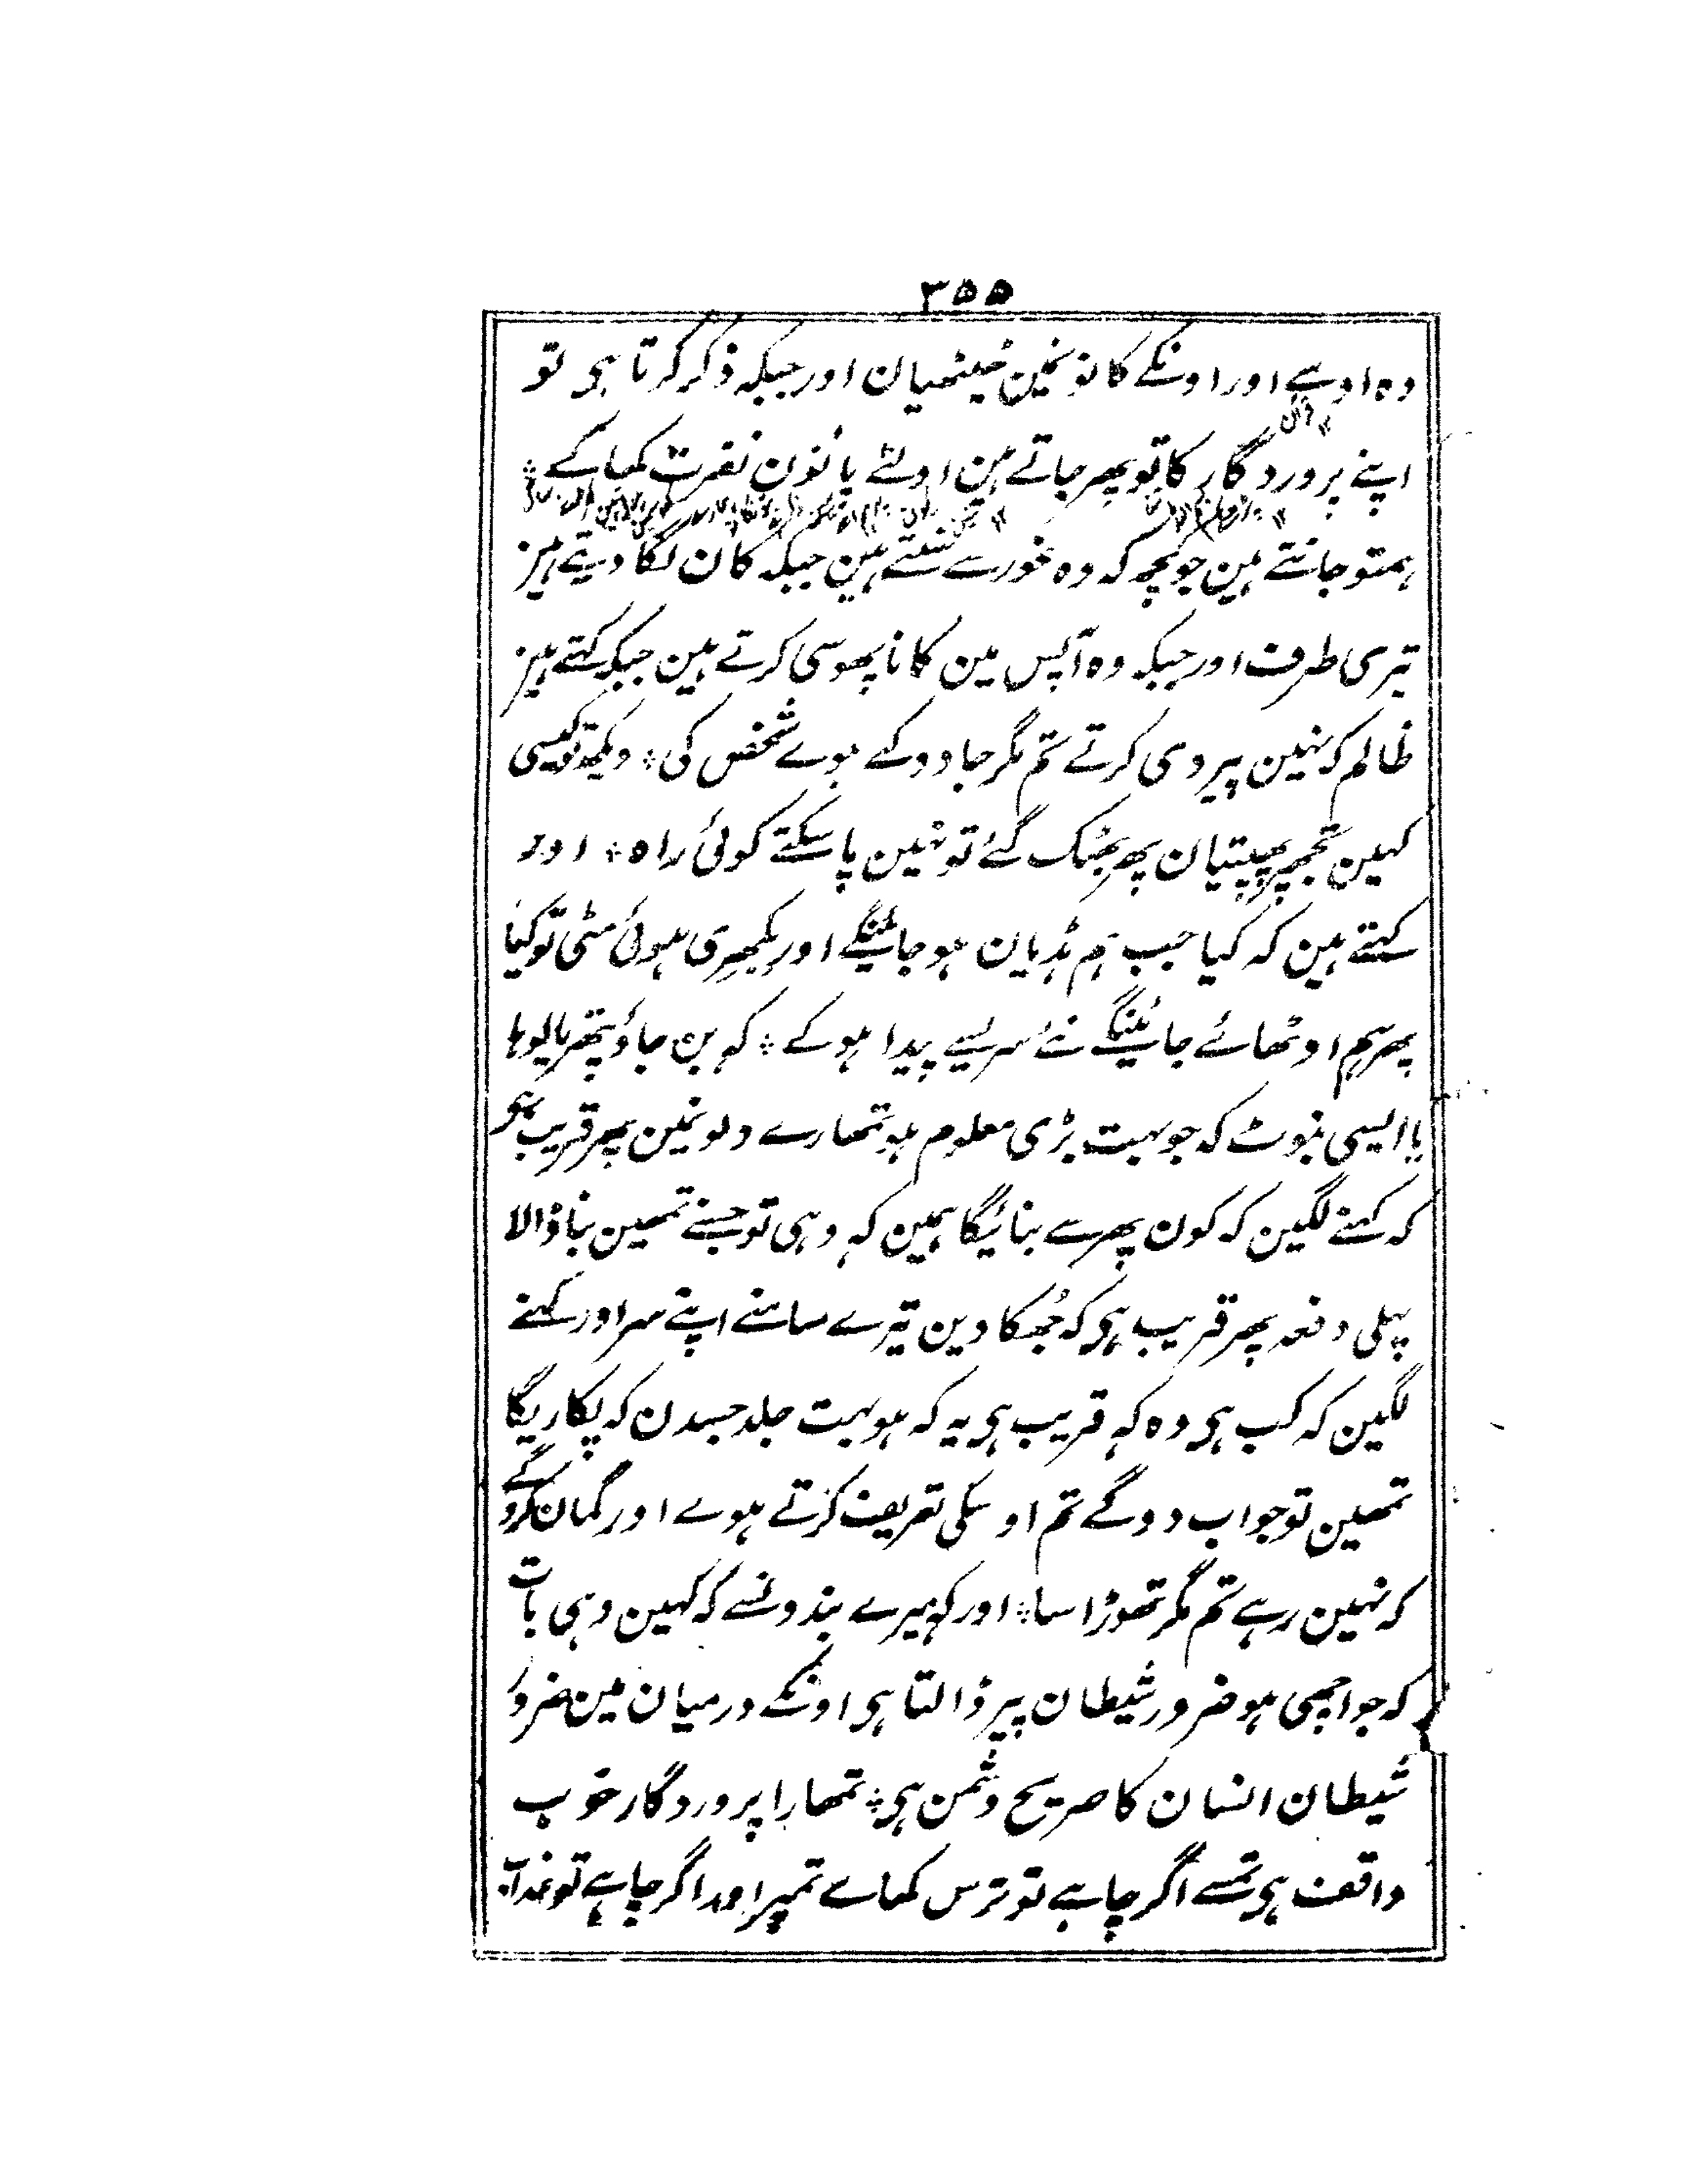 ۳۵۵
وہ اوسے اور اونکے کانونمین ٹھیٹھیان اور جبکہ ذکر کرتا ہی تو
اپنے پروردگار کا تو پھر جاتے ہین اولٹے پانوُن نفرت کھا کے ؞
ہمتو جانتے ہین جو کچھ کہ وہ غور سے سنتے ہین جبکہ کان لگا دیتے ہین
تیری طرف اور جبکہ وہ آپس مین کانا پھوسی کرتے ہین جبکہ کہتے ہین
ظالم کہ نہین پیروی کرتے تم مگر جادو کے ہوے شخص کی ؞ دیکھ تو کیسی
کہین تجھپر پھپتیان پھر بھٹک گئے تو نہین پا سکتے کوئی راہ ؞ اور
کہتے ہین کہ کیا جب ہم ہڈیان ہو جائینگے اور بکھری ہوئی مٹی تو کیا
پھر ہم اوٹھائے جائینگے نئے سرسے پیدا ہو کے ؞ کہہ بن جاؤ پتھر یا لوہا
یا ایسی بنوٹ کہ جو بہت بڑی معلوم ہو تمھارے دلونمین پھر قریب ہی
کہ کہنے لگین کہ کون پھر سے بنائیگا ہمین کہہ وہی تو جسنے تمھین بنا ڈالا
پہلی دفعہ پھر قریب ہی کہ جُھکا دین تیرے سامنے اپنے سر اور کہنے
لگین کہ کب ہی وہ کہہ قریب ہی یہ کہ ہو بہت جلد جسدن کہ پکاریگا
تمھین تو جواب دوگے تم اوسکی تعریف کرتے ہوے اور گمان کروگے
کہ نہین رہے تم مگر تھوڑا سا ؞ اور کہہ میرے بندونسے کہ کہین وہی بات
کہ جو اچھی ہو ضرور شیطان بیر ڈالتا ہی اونکے درمیان مین ضرور
شیطان انسان کا صریح دشمن ہی ؞ تمھارا پروردگار خوب
واقف ہی تمسے اگر چاہے تو ترس کھاے تمپر اور اگر چاہے تو عذاب